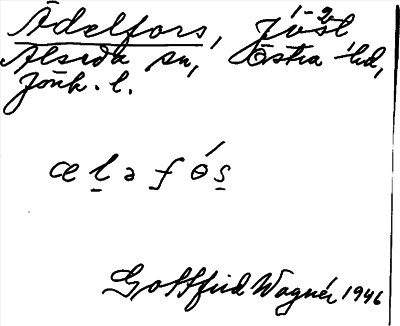 Ädelfors,
Alseda sn, Östra hd,
Jönk. l.
ælǝfǿs
Gottfrid Wagnér 1946